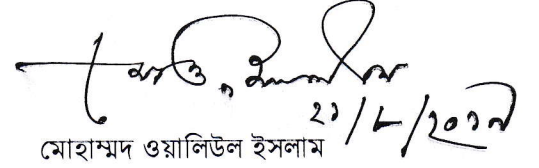 ২১/৮/২০১৭
মোহাম্মদ ওয়ালিউল ইসলাম